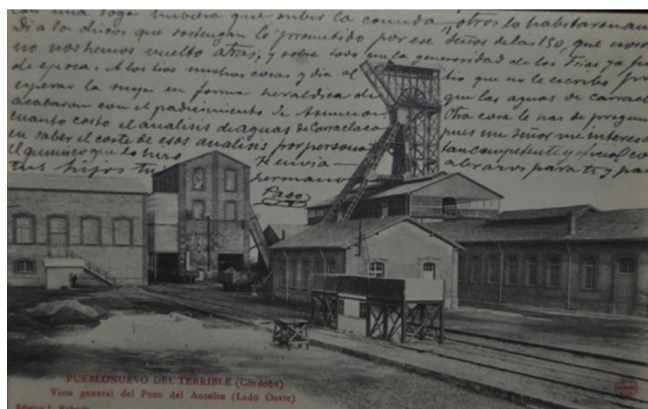 con una soga hubiera que subir la comida, otros lo habitaron an
Di a los chicos que sostengan lo prometido por ese Señor de las 150, que noso
no nos hemos vuelto atras, y sobre todo en la generosidad de los Trias ya pas
de epoca. A los tios muchas cosas y dia al tio que no le escribo
esperar la mejo en forma heraldica de que las aguas de carracl
acabaron con el padecimiento de Asuncion Otra cosa le has de pregun
cuanto costo el analisis de aguas de Carraclaca pues un Señor me intereso
en saber el coste de esos analisis por persona tan competente y oficial co
el quimico que lo hizo Te envia abrazos para ti y pa
tus hijos tu hermano
Paco
PUEBLONUEVO DEL TERRIBLE (Córdoba)
Vista general del Pozo del Antolín (Lado Oeste)